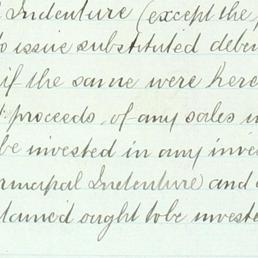 Indenture (except the
to issue substituted deben
if the same were here
proceeds of any sales
be invested in any inve
rincipal Indenture) and
tained ought to be investe